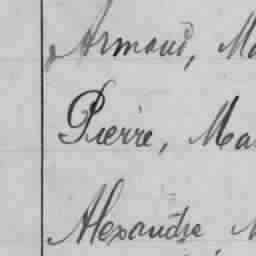 Armand, Ma
Pierre, Ma
Alexandre M